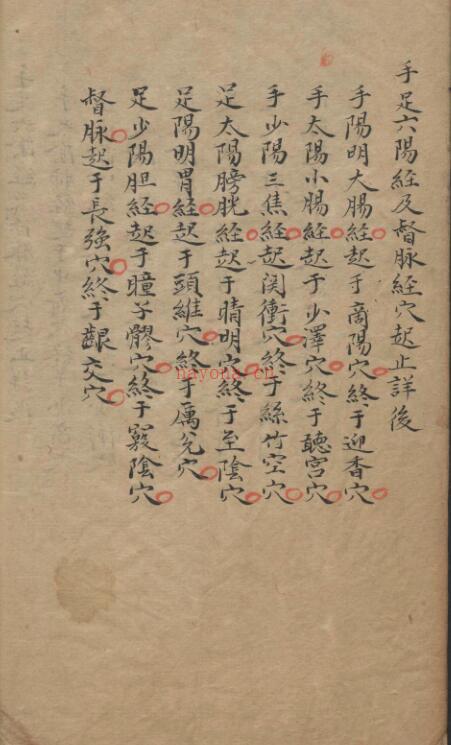 手足六陽経及督脉経穴起止詳後
手陽明大腸経起于商陽穴終于迎香穴
手太陽小腸経起于少澤穴終于聽宮穴
手少陽三焦経起関衝穴終于絲竹空穴
足太陽膀胱経起于睛明穴終于至陰穴
足陽明胃経起于頭維穴終于厲兌穴
足少陽胆経起于瞳子髎穴終于竅陰穴
督脉起于長強穴終于齦交穴